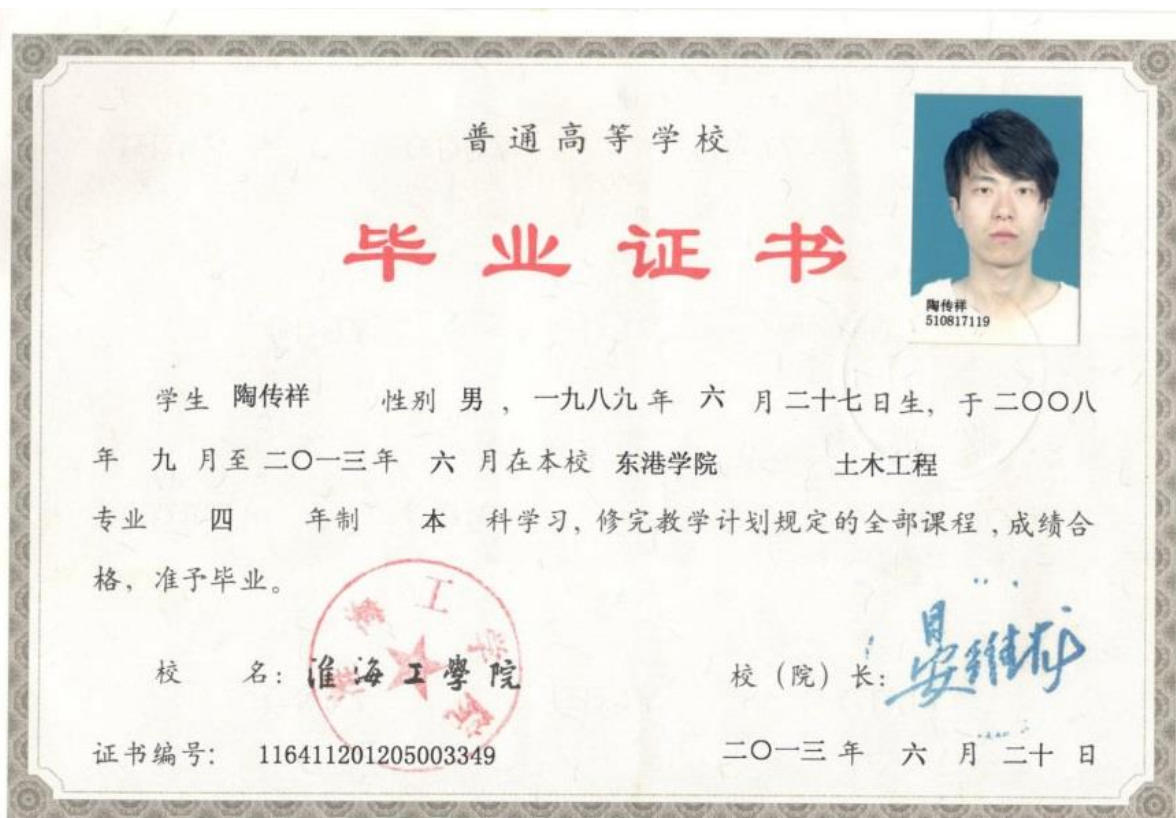 普通高等学校
毕业证书
陶传祥
510817119
学生 陶传祥 性别 男 ，一九八九 年 六 月 二十七 日生，于 二〇〇八
年 九 月至 二〇一三 年 六 月在本校 东港学院 土木工程
专业 四 年制 本 科学习，修完教学计划规定的全部课程，成绩合
格，准予毕业。
淮海工学院
校 名：淮海工學院
校（院）长：晏维龙
证书编号： 116411201205003349
二〇一三 年 六 月 二十 日